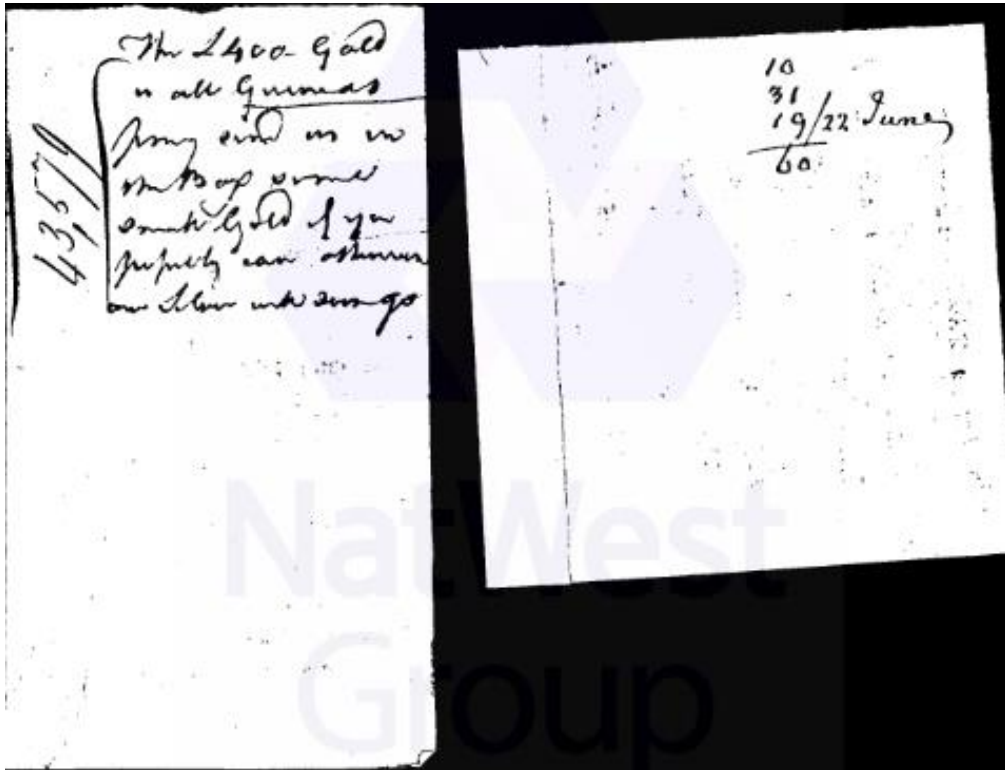 The £400 Gold
is all Guineas
pray send us in
the Box some
small Gold if you
possibly can otherwise
our Silver will soon go
43,579
10
31
19/22 June
60
NatWest
Group